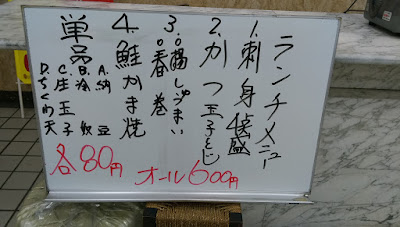 ランチメニュー
1.刺身盛
2.かつ玉子とじ
3.○陽しゅうまい
○春巻
4.鮭かま焼
単品
A.納豆
B.冷奴
C.生玉子
D.ちくわ天
各80円
オール600円